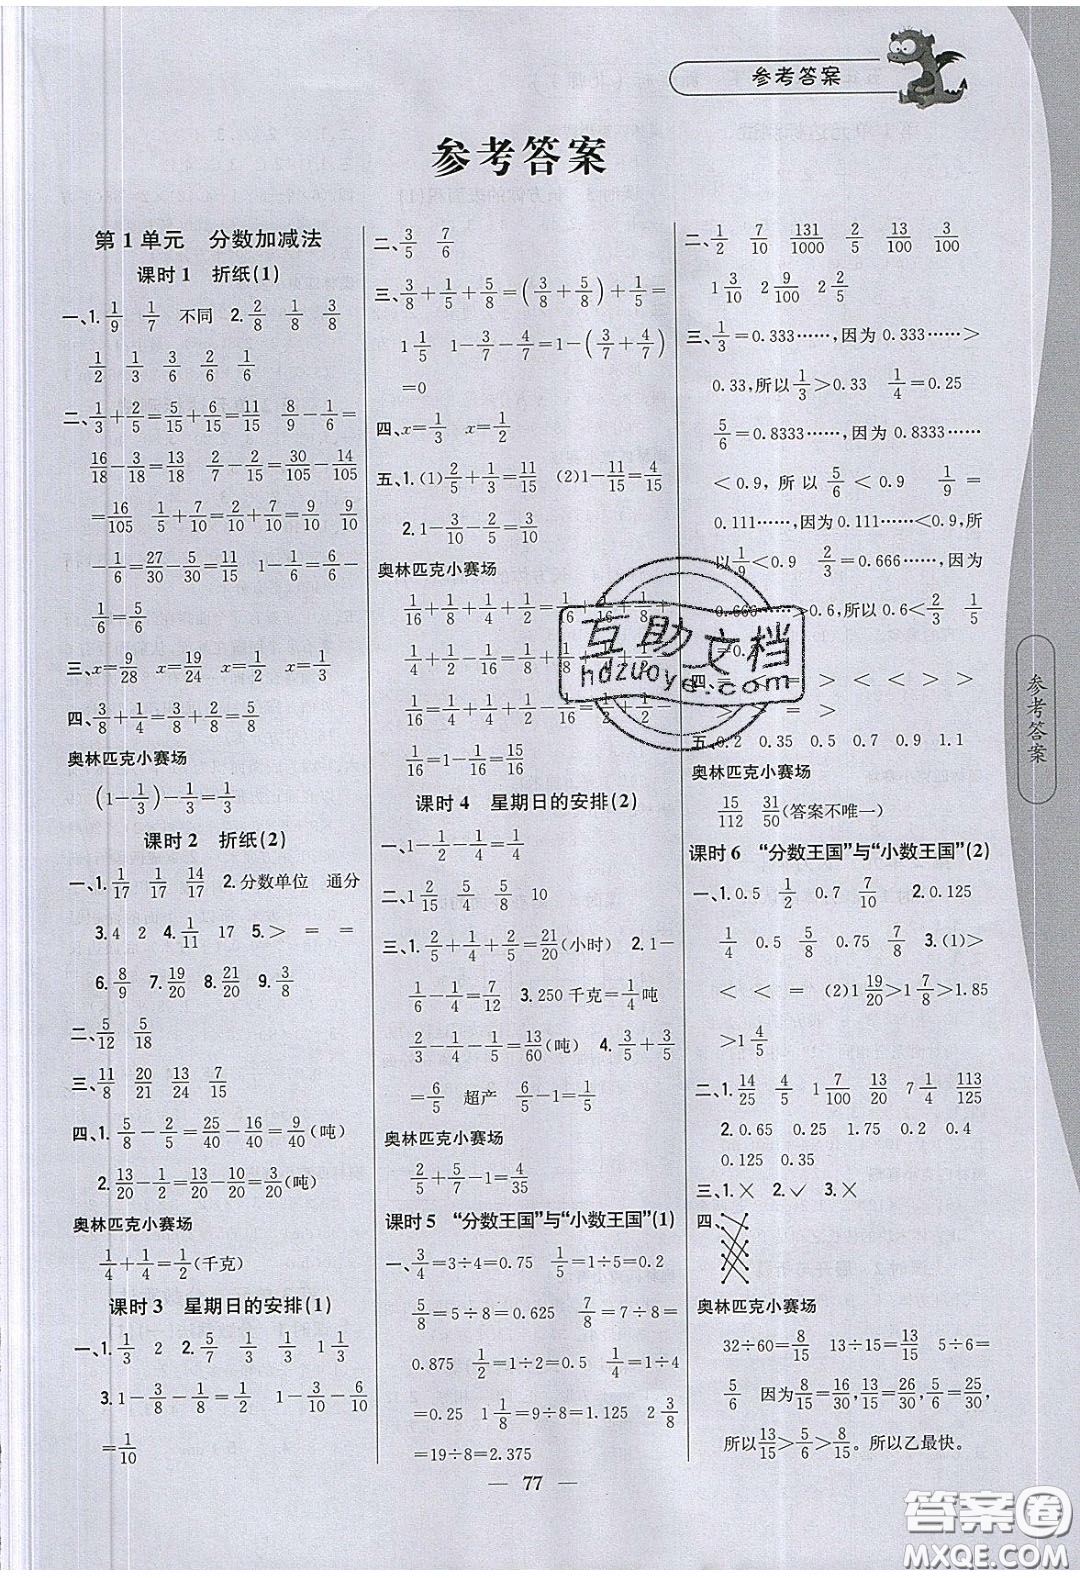 参考答案
参考答案
第1单元 分数加减法
课时1 折纸(1)
一、1. 1/9 1/7 不同 2. 2/8 1/8 3/8
1/2 1/3 3/6 2/6 1/6
二、1/3+2/5=5/15+6/15=11/15 8/9-1/6=
16/18-3/18=13/18 2/7-2/15=30/105-14/105
=16/105 1/5+7/10=2/10+7/10=9/10 9/10
-1/6=27/30-5/30=11/15 1-1/6=6/6-
1/6=5/6
三、x=9/28 x=19/24 x=1/2 x=1/3
四、3/8+1/4=3/8+2/8=5/8
奥林匹克小赛场
(1-1/3)-1/3=1/3
课时2 折纸(2)
一、1. 1/17 1/17 14/17 2.分数单位 通分
3.4 2 4. 1/11 17 5.> = =
6. 8/9 7. 19/20 8. 21/20 9. 3/8
二、5/12 5/18
三、11/8 20/21 13/24 7/15
四、1. 5/8-2/5=25/40-16/40=9/40(吨)
2. 13/20-1/2=13/20-10/20=3/20(吨)
奥林匹克小赛场
1/4+1/4=1/2(千克)
课时3 星期日的安排(1)
一、1. 1/3 2 2. 5/7 1/3 1/3 1 1/3
3. 1-3/8-1/8=1/2 1-3/10-6/10
=1/10
二、3/5 7/6
三、3/8+1/5+5/8=(3/8+5/8)+1/5=
1 1/5 1-3/7-4/7=1-(3/7+4/7)
=0
四、x=1/3 x=1/2
五、1.(1)2/5+1/3=11/15 (2)1-11/15=4/15
2. 1-3/10-2/5=3/10
奥林匹克小赛场
1/16+1/8+1/4+1/2=1/16+1/16+1/8+
1/4+1/2-1/16=1/8+1/8+
1/16=1/4+1/4+1/2-1/16=1/2+1/2-
1/16=1-1/16=15/16
课时4 星期日的安排(2)
一、1-1/2-1/4=1/4
二、1 2/15 4/5 5/8 10
三、1. 2/5+1/4+2/5=21/20(小时) 2. 1-
1/6-1/4=7/12 3. 250千克=1/4吨
2/3-1/4-1/5=13/60(吨) 4. 3/5+3/5
=6/5 超产 6/5-1=1/5
奥林匹克小赛场
2/5+5/7-1=4/35
课时5 “分数王国”与“小数王国”(1)
一、3/4=3÷4=0.75 1/5=1÷5=0.2
5/8=5÷8=0.625 7/8=7÷8=
0.875 1/2=1÷2=0.5 1/4=1÷4
=0.25 1 1/8=9÷8=1.125 2 3/8
=19÷8=2.375
二、1/2 7/10 131/1000 2/5 13/20 3/100
1 3/10 2 9/100 3/4
三、1/3=0.333……,因为0.333……>
0.33,所以1/3>0.33 1/4=0.25
5/6=0.8333……,因为0.8333……
<0.9,所以5/6<0.9 1/9=
0.111……,因为0.111……<0.9,所
以1/9<0.9 2/3=0.666……,因为
0.666……>0.6,所以0.6<2/3 1/5
=0.2
四、= = > < < > >
> > = >
五、0.2 0.35 0.5 0.9 1.1
奥林匹克小赛场
15/112 31/50(答案不唯一)
课时6 “分数王国”与“小数王国”(2)
一、1.0.5 1/2 0.7 7/10 2.0.125
1/4 0.5 5/8 0.75 7/8 3.(1)>
< < = (2)1 19/20>1 7/8>1.85
>1 4/5
二、1. 14/25 4/5 1 7/100 17/20 7 1/4 113/125
2.0.65 0.25 1.75 0.2 0.4
0.125 0.35
三、1.✕ 2.✓ 3.✕
四、
奥林匹克小赛场
32÷60=8/15 13÷15=13/15 5÷6=
5/6 因为8/15=16/30,13/15=26/30,5/6=25/30,
所以13/15>5/6>8/15。所以乙最快。
参考答案
— 77 —
互助文档
hdzuoye.com
答案圈
MXQE.COM